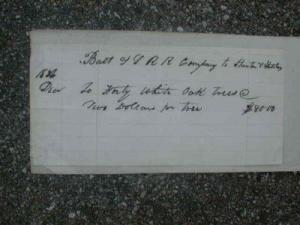 Balt & O R R Company to
1856
Nov To Forty White Oak trees @
Two Dollars per tree $80.00